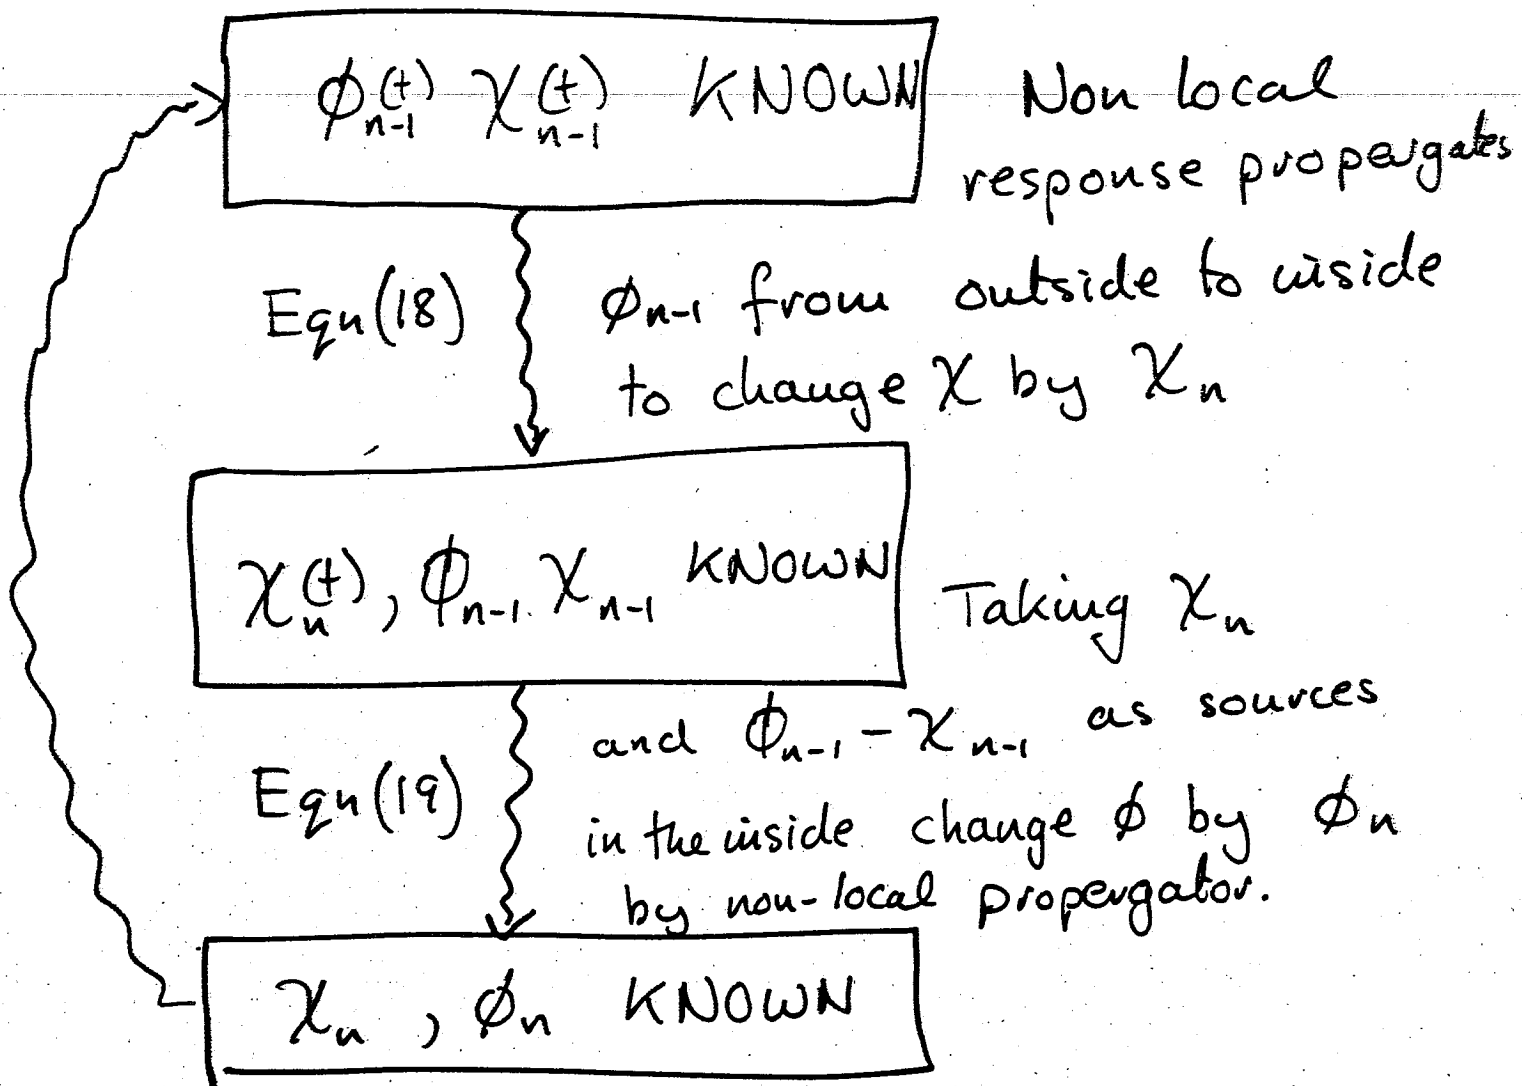 ϕₙ₋₁(t) χₙ₋₁(t) KNOWN
Non local
response propergates
Eqn(18)
ϕₙ₋₁ from outside to inside
to change χ by χₙ
χₙ(t), ϕₙ₋₁ χₙ₋₁ KNOWN
Taking χₙ
and ϕₙ₋₁ - χₙ₋₁ as sources
Eqn(19)
in the inside change ϕ by ϕₙ
by non-local propergator.
χₙ , ϕₙ KNOWN